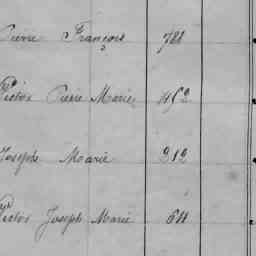 Pierre François 788
Victor Pierre Marie 452
Joseph Marie 212
Victor Joseph Marie 611